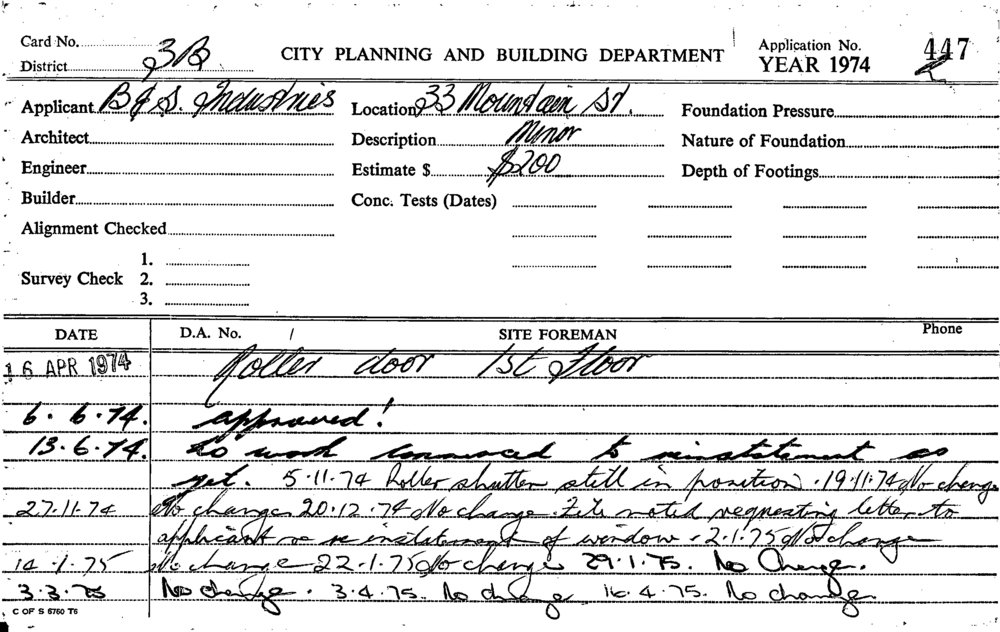 Card No. CITY PLANNING AND BUILDING DEPARTMENT Application No. 447
District 3B YEAR 1974
Applicant B & S. Industries Location 33 Mountain St. Foundation Pressure
Architect Description Minor Nature of Foundation
Engineer Estimate $ $200 Depth of Footings
Builder Conc. Tests (Dates)
Alignment Checked
1.
Survey Check 2.
3.
DATE D.A. No. / SITE FOREMAN Phone
16 APR 1974 Roller door 1st Floor
6.6.74. approved!
13.6.74. No work commenced to reinstatement as
yet. 5.11.74 Roller shutter still in position. 19.11.74 No change
27.11.74 No change 20.12.74 No change. File noted requesting letter to
applicant re reinstatement of window. 2.1.75 No change
14.1.75 No change 22.1.75 No change 29.1.75. No Change.
3.3.75 No change. 3.4.75. No change 16.4.75. No change.
C OF S 6760 T6